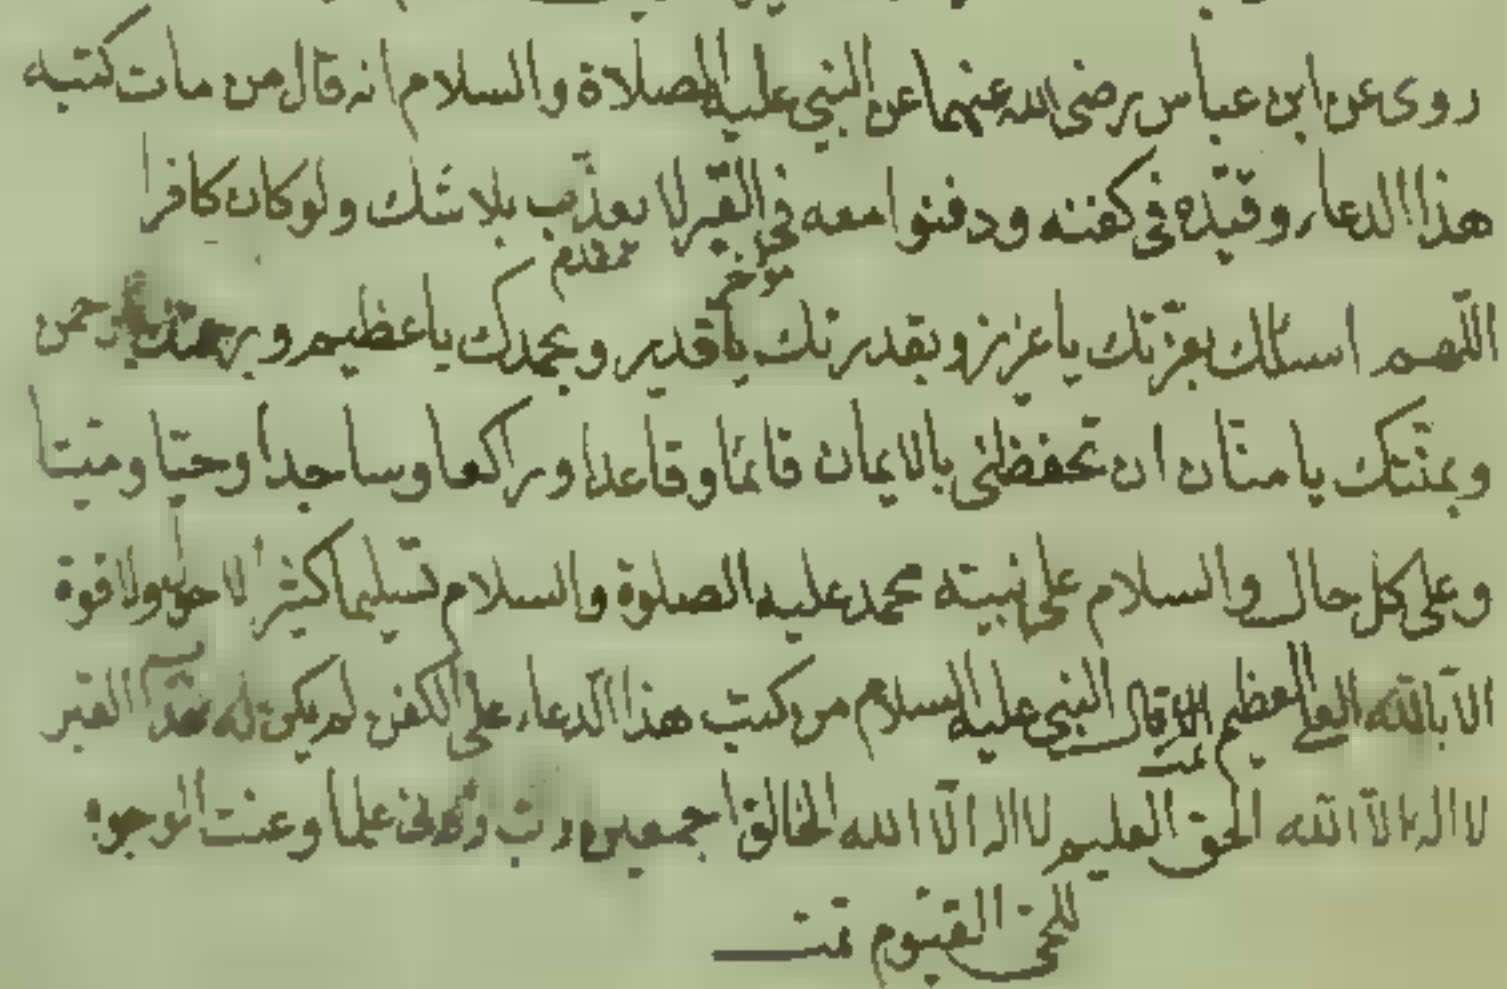 روى عن ابن عباس رضى الله عنهما عن النبي عليه الصلاة والسلام انه قال من مات كتبه
هذا الدعاء وقيّده فى كفنه ودفنوا معه فى القبر لا يعذب بلا شك ولو كان كافرا
مؤخر مقدم
اللّهم اسئلك بعزّتك يا عزيز وبقدرتك يا قدير وبحمدك يا عظيم وبرحمتك يا رحمن
وبمنّتك يا منّان ان تحفظنى بالايمان قائما وقاعدا وراكعا وساجدا وحيّا وميتا
وعلى كل حال والسلام على نبيّه محمد عليه الصلوة والسلام تسليما كثيرا لا حول ولا قوة
الّا بالله العلى العظيم تمت قال النبى عليه السلام من كتب هذا الدعاء على الكفن لم يكن له القبر
لا اله الّا الله الحق العليم لا اله الّا الله الخالق اجمعين رب زدنى علما وعنت الوجوه
للحى القيّوم تمت